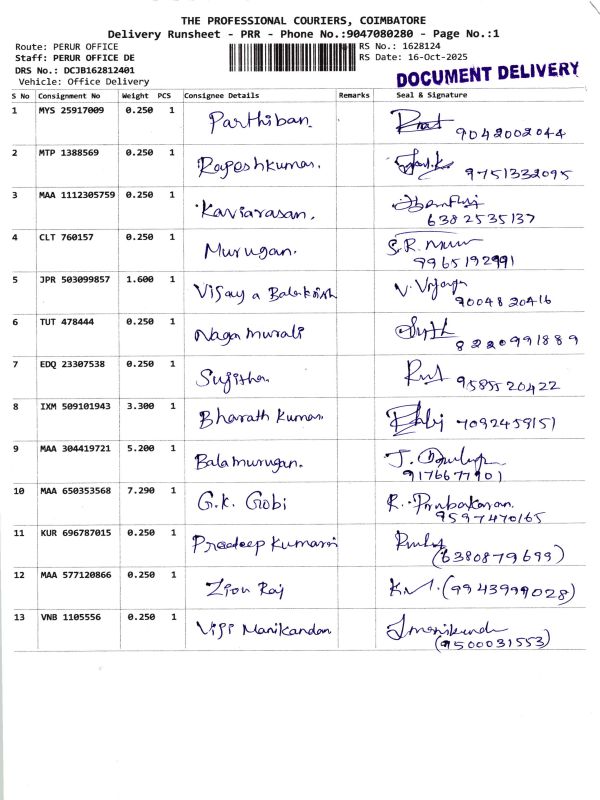 THE PROFESSIONAL COURIERS, COIMBATORE
Delivery Runsheet - PRR - Phone No.:9047080280 - Page No.:1
Route: PERUR OFFICE RS No.: 1628124
Staff: PERUR OFFICE DE RS Date: 16-Oct-2025
DRS No.: DCJB162812401
Vehicle: Office Delivery
DOCUMENT DELIVERY
S No Consignment No Weight PCS Consignee Details Remarks Seal & Signature
1 MYS 25917009 0.250 1 Parthiban.
9042002044
2 MTP 1388569 0.250 1 Rajeshkumar.
9751332095
3 MAA 1112305759 0.250 1 Kaviarasan.
6382535137
4 CLT 760157 0.250 1 Murugan.
9965192991
5 JPR 503099857 1.600 1 Vijay a Balakrish V. Vijaya
9004820416
6 TUT 478444 0.250 1 Naga Murali
8220991889
7 EDQ 23307538 0.250 1 Sujitha.
9585520422
8 IXM 509101943 3.300 1 Bharath Kumar.
7092459151
9 MAA 304419721 5.200 1 Balamurugan.
9176677901
10 MAA 650353568 7.290 1 G.K. Gobi R. Prabakaran.
9597470165
11 KUR 696787015 0.250 1 Pradeep Kumar
(6380879699)
12 MAA 577120866 0.250 1 Zion Raj
(9943999028)
13 VNB 1105556 0.250 1 Viji Manikandan
(9500031553)